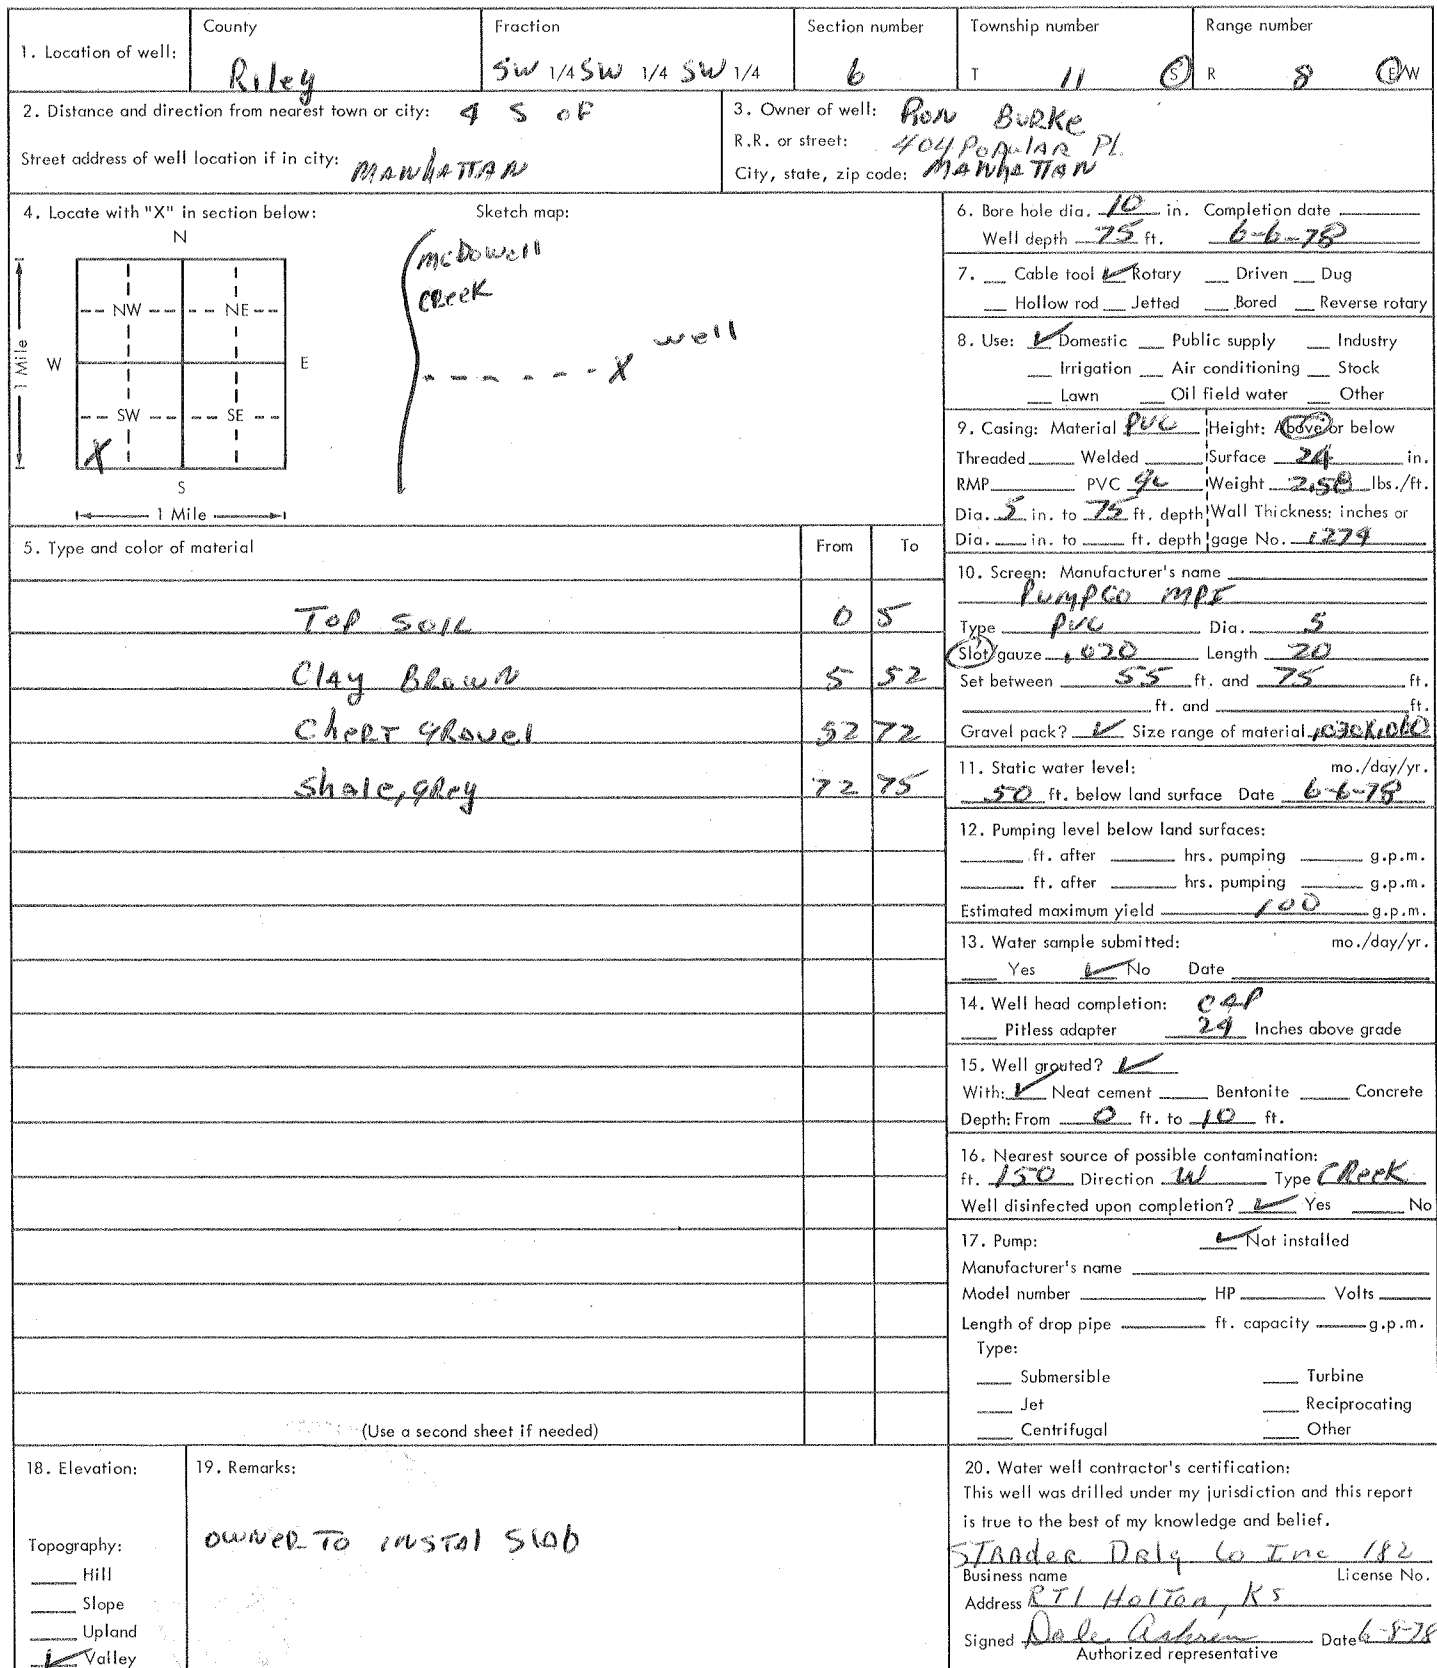 1. Location of well:
County
Riley
Fraction
SW 1/4 SW 1/4 SW 1/4
Section number
6
Township number
T 11 S
Range number
R 8 E/W
2. Distance and direction from nearest town or city: 4 S OF
Street address of well location if in city: MANHATTAN
3. Owner of well: RON BURKE
R.R. or street: 404 POPULAR PL.
City, state, zip code: MANHATTAN
4. Locate with "X" in section below:
Sketch map:
N
NW NE
W E
SW SE
X
S
1 Mile
1 Mile
McDowell
CREEK
X well
5. Type and color of material From To
TOP SOIL 0 5
Clay BROWN 5 52
CheRT gRavel 52 72
Shale, gRey 72 75
(Use a second sheet if needed)
6. Bore hole dia. 10 in. Completion date
Well depth 75 ft. 6-6-78
7. Cable tool ✓ Rotary Driven Dug
Hollow rod Jetted Bored Reverse rotary
8. Use: ✓ Domestic Public supply Industry
Irrigation Air conditioning Stock
Lawn Oil field water Other
9. Casing: Material PVC Height: Above or below
Threaded Welded Surface 24 in.
RMP PVC Weight 2.58 lbs./ft.
Dia. 5 in. to 75 ft. depth Wall Thickness: inches or
Dia. in. to ft. depth gage No.
10. Screen: Manufacturer's name
PUMPCO MPI
Type PVC Dia. 5
Slot/gauze .020 Length 20
Set between 55 ft. and 75 ft.
ft. and ft.
Gravel pack? ✓ Size range of material
11. Static water level: mo./day/yr.
50 ft. below land surface Date 6-6-78
12. Pumping level below land surfaces:
ft. after hrs. pumping g.p.m.
ft. after hrs. pumping g.p.m.
Estimated maximum yield 100 g.p.m.
13. Water sample submitted: mo./day/yr.
Yes ✓ No Date
14. Well head completion: CAP
Pitless adapter 24 Inches above grade
15. Well grouted? ✓
With: ✓ Neat cement Bentonite Concrete
Depth: From 0 ft. to 10 ft.
16. Nearest source of possible contamination:
ft. 150 Direction W Type CReeK
Well disinfected upon completion? ✓ Yes No
17. Pump: ✓ Not installed
Manufacturer's name
Model number HP Volts
Length of drop pipe ft. capacity g.p.m.
Type:
Submersible Turbine
Jet Reciprocating
Centrifugal Other
18. Elevation:
Topography:
Hill
Slope
Upland
✓ Valley
19. Remarks:
OWNER TO INSTAL SLAB
20. Water well contractor's certification:
This well was drilled under my jurisdiction and this report
is true to the best of my knowledge and belief.
STRADER DRLG CO Inc 182
Business name License No.
Address RT1 Holton, KS
Signed Dale Date 6-8-78
Authorized representative